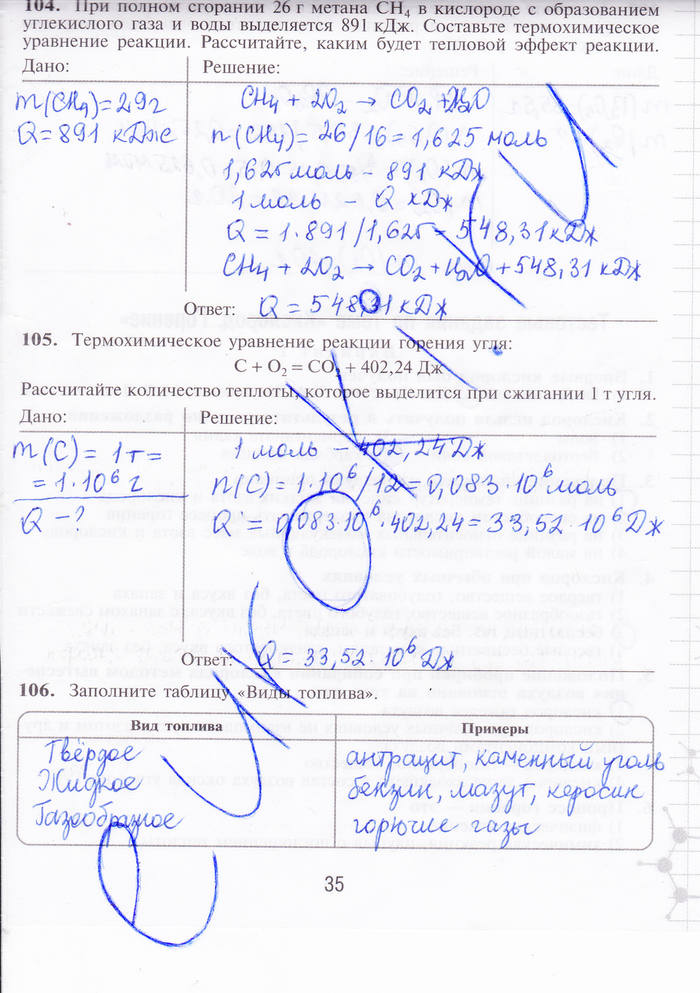 104. При полном сгорании 26 г метана CH4 в кислороде с образованием
углекислого газа и воды выделяется 891 кДж. Составьте термохимическое
уравнение реакции. Рассчитайте, каким будет тепловой эффект реакции.
Дано: Решение:
m(CH4)=29г CH4 + 2O2 → CO2 + 2H2O
Q=891 кДж n(CH4)=26/16=1,625 моль
1,625 моль - 891 кДж
1 моль - Q кДж
Q = 1·891/1,625 = 548,31 кДж
CH4 + 2O2 → CO2 + H2O + 548,31 кДж
Ответ: Q = 548,31 кДж
105. Термохимическое уравнение реакции горения угля:
C + O2 = CO2 + 402,24 Дж
Рассчитайте количество теплоты, которое выделится при сжигании 1 т угля.
Дано: Решение:
m(C) = 1т = 1 моль - 402,24 Дж
= 1·10⁶ г n(C) = 1·10⁶/12 = 0,083·10⁶ моль
Q - ? Q = 0,083·10⁶·402,24 = 33,52·10⁶ Дж
Ответ: Q = 33,52·10⁶ Дж
106. Заполните таблицу «Виды топлива».
Вид топлива Примеры
Твёрдое антрацит, каменный уголь
Жидкое бензин, мазут, керосин
Газообразное горючие газы
35